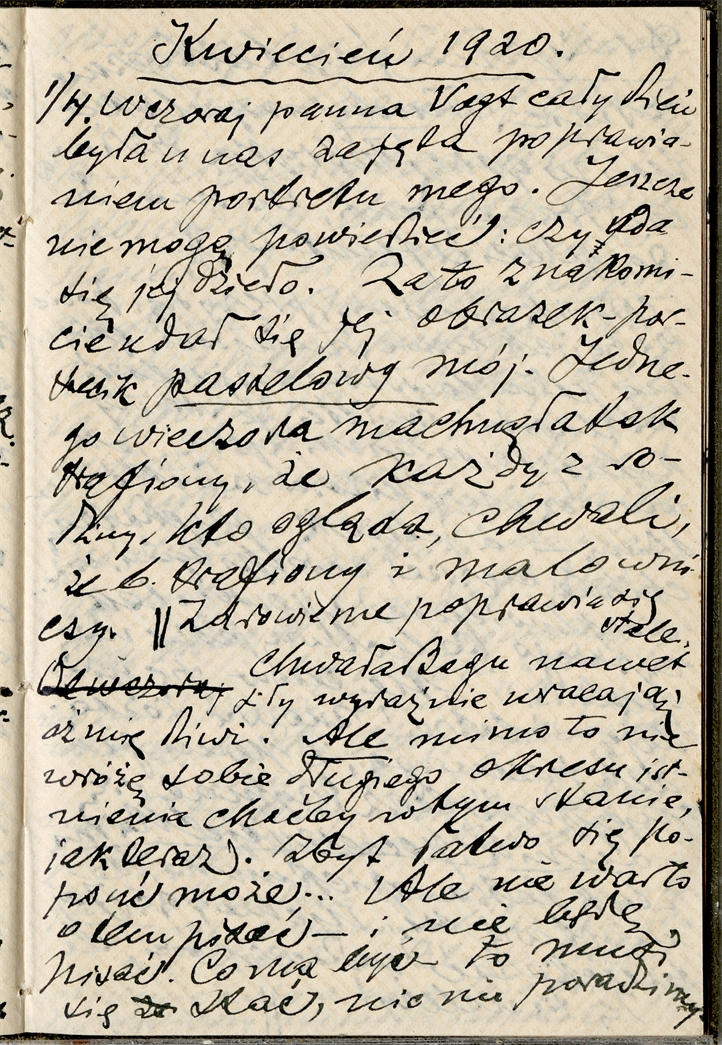 Kwiecień 1920.
1/4. Wczoraj panna Vogt cały dzień
była u nas zajęta poprawia-
niem portretu mego. Jeszcze
nie mogę powiedzieć: czy uda
się jej dzieło. Za to znakomi-
cie udał się jej obrazek-por-
trecik pastelowy mój. Jedne-
go wieczora machnęła tak
trafiony, że każdy z ro-
dziny, kto ogląda, chwali,
że b. trafiony i malowni-
czy. || Zdrowie me poprawia się
stale.
Od wczoraj Chwała Bogu nawet
siły wyraźnie wracają,
aż mię dziwi. Ale mimo to nie
wróżę sobie długiego okresu ist-
nienia choćby w tym stanie,
jak teraz. Zbyt łatwo się po-
psuć może... Ale nie warto
o tem pisać – i nie będę
pisać. Co ma być to musi
się stać, nic nie poradzimy